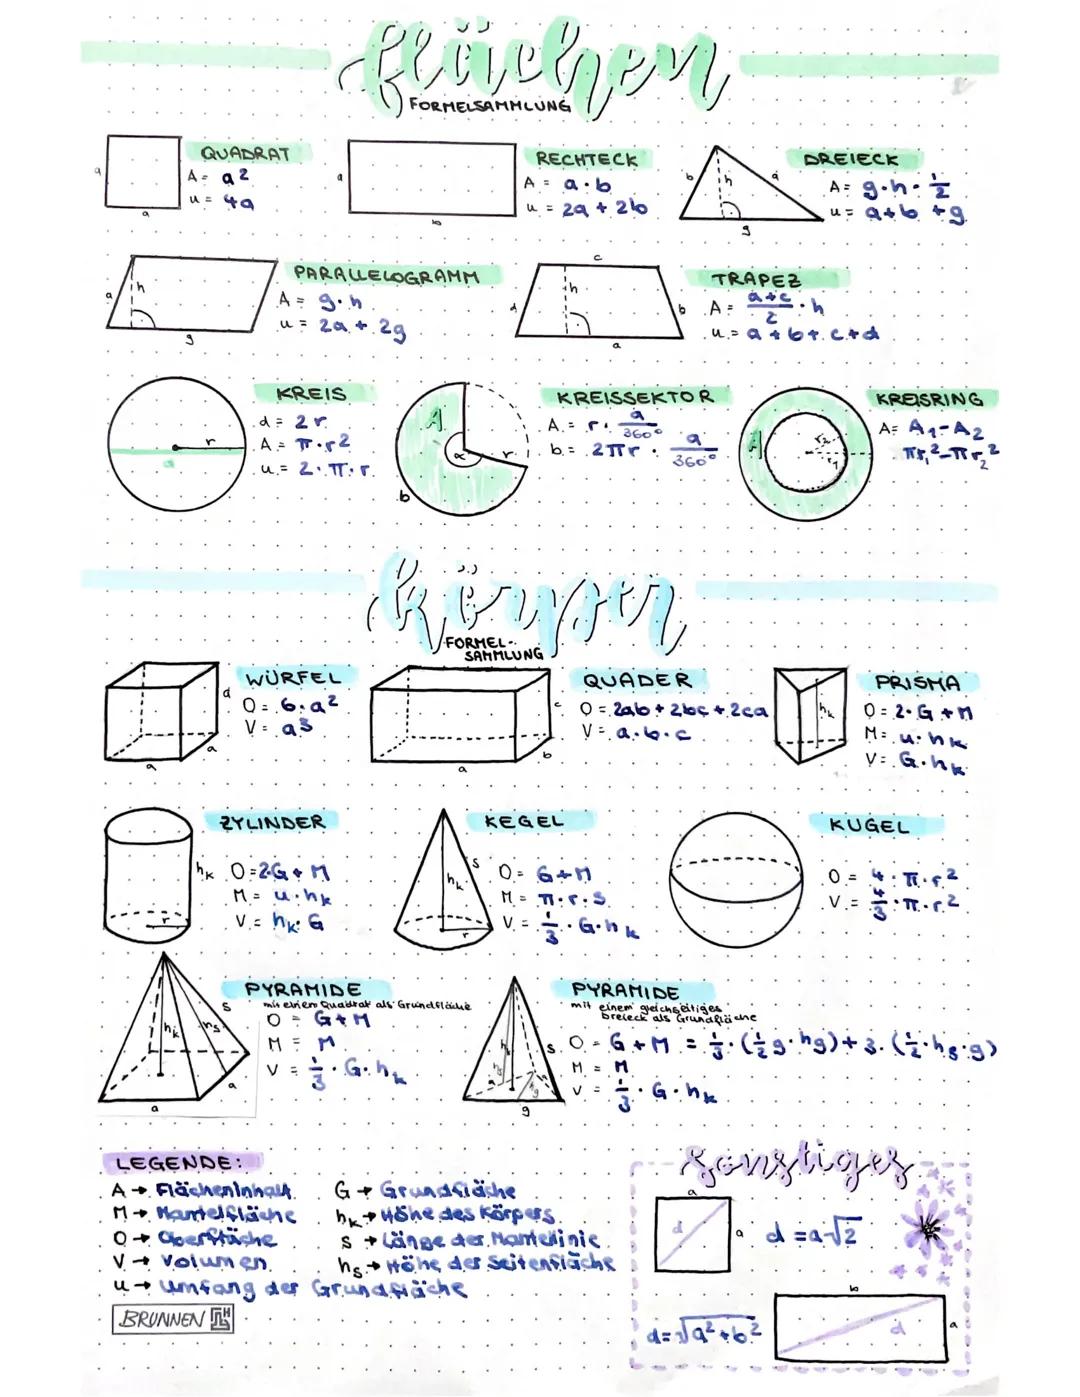 flächen
FORMELSAMMLUNG
QUADRAT
A = a²
u = 4a
a
a
RECHTECK
A = a · b
u = 2a + 2b
a
b
DREIECK
A = g · h · 1/2
u = a + b + g
b
h
a
g
PARALLELOGRAMM
A = g · h
u = 2a + 2g
a
h
g
TRAPEZ
A = a+c/2 · h
u = a + b + c + d
c
d
h
b
a
KREIS
d = 2r
A = π · r²
u = 2 · π · r
r
d
KREISSEKTOR
A = r · a/360°
b = 2πr · a/360°
A
α
r
b
KREISRING
A = A₁ - A₂
πr₁² - πr₂²
A
r₂
r₁
körper
FORMEL-
SAMMLUNG
WÜRFEL
O = 6 · a²
V = a³
a
a
a
QUADER
O = 2ab + 2bc + 2ca
V = a · b · c
c
b
a
PRISMA
O = 2 · G + M
M = u · hk
V = G · hk
hk
ZYLINDER
O = 2·G + M
M = u · hk
V = hk · G
hk
r
KEGEL
O = G + M
M = π · r · s
V = 1/3 · G · hk
s
hk
r
KUGEL
O = 4 · π · r²
V = 4/3 · π · r²
PYRAMIDE
mit einem Quadrat als Grundfläche
O = G + M
M = M
V = 1/3 · G · hk
s
hk
hs
a
a
PYRAMIDE
mit einem gleichseitiges
Dreieck als Grundfläche
O = G + M = 1/3 · (1/2 g · hg) + 3 · (1/2 · hs · g)
M = M
V = 1/3 · G · hk
s
hs
hg
g
LEGENDE:
A → Flächeninhalt
M → Mantelfläche
O → Oberfläche
V → Volumen
u → Umfang der Grundfläche
G → Grundfläche
hk → Höhe des Körpers
s → Länge der Mantellinie
hs → Höhe der Seitenfläche
BRUNNEN
sonstiges
a
d
a
d = a√2
d = √a² + b²
b
d
a